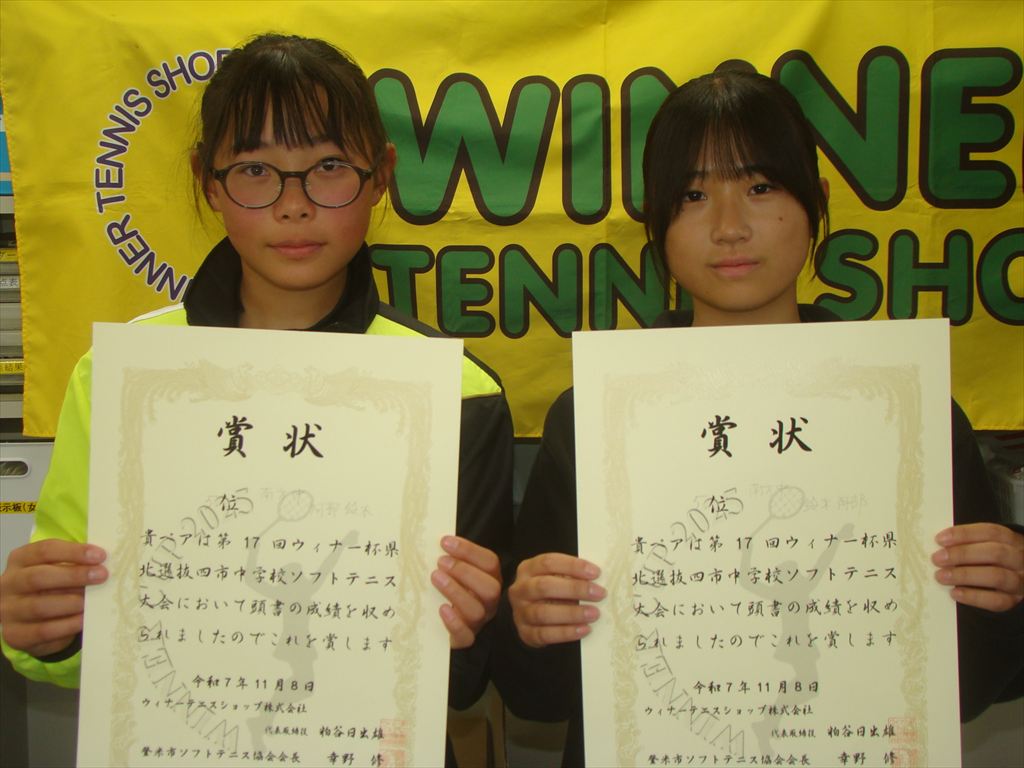 WINNER TENNIS SHOP
WINNE
TENNI SHO
賞状
位
貴ペアは第17回ウィナー杯県
北選抜四市中学校ソフトテニス
大会において頭書の成績を収め
られましたのでこれを賞します
令和7年11月8日
ウィナーテニスショップ株式会社
代表取締役 粕谷日出雄
登米市ソフトテニス協会会長 幸野 修
賞状
位
貴ペアは第17回ウィナー杯県
北選抜四市中学校ソフトテニス
大会において頭書の成績を収め
られましたのでこれを賞します
令和7年11月8日
ウィナーテニスショップ株式会社
代表取締役 粕谷日出雄
登米市ソフトテニス協会会長 幸野 修